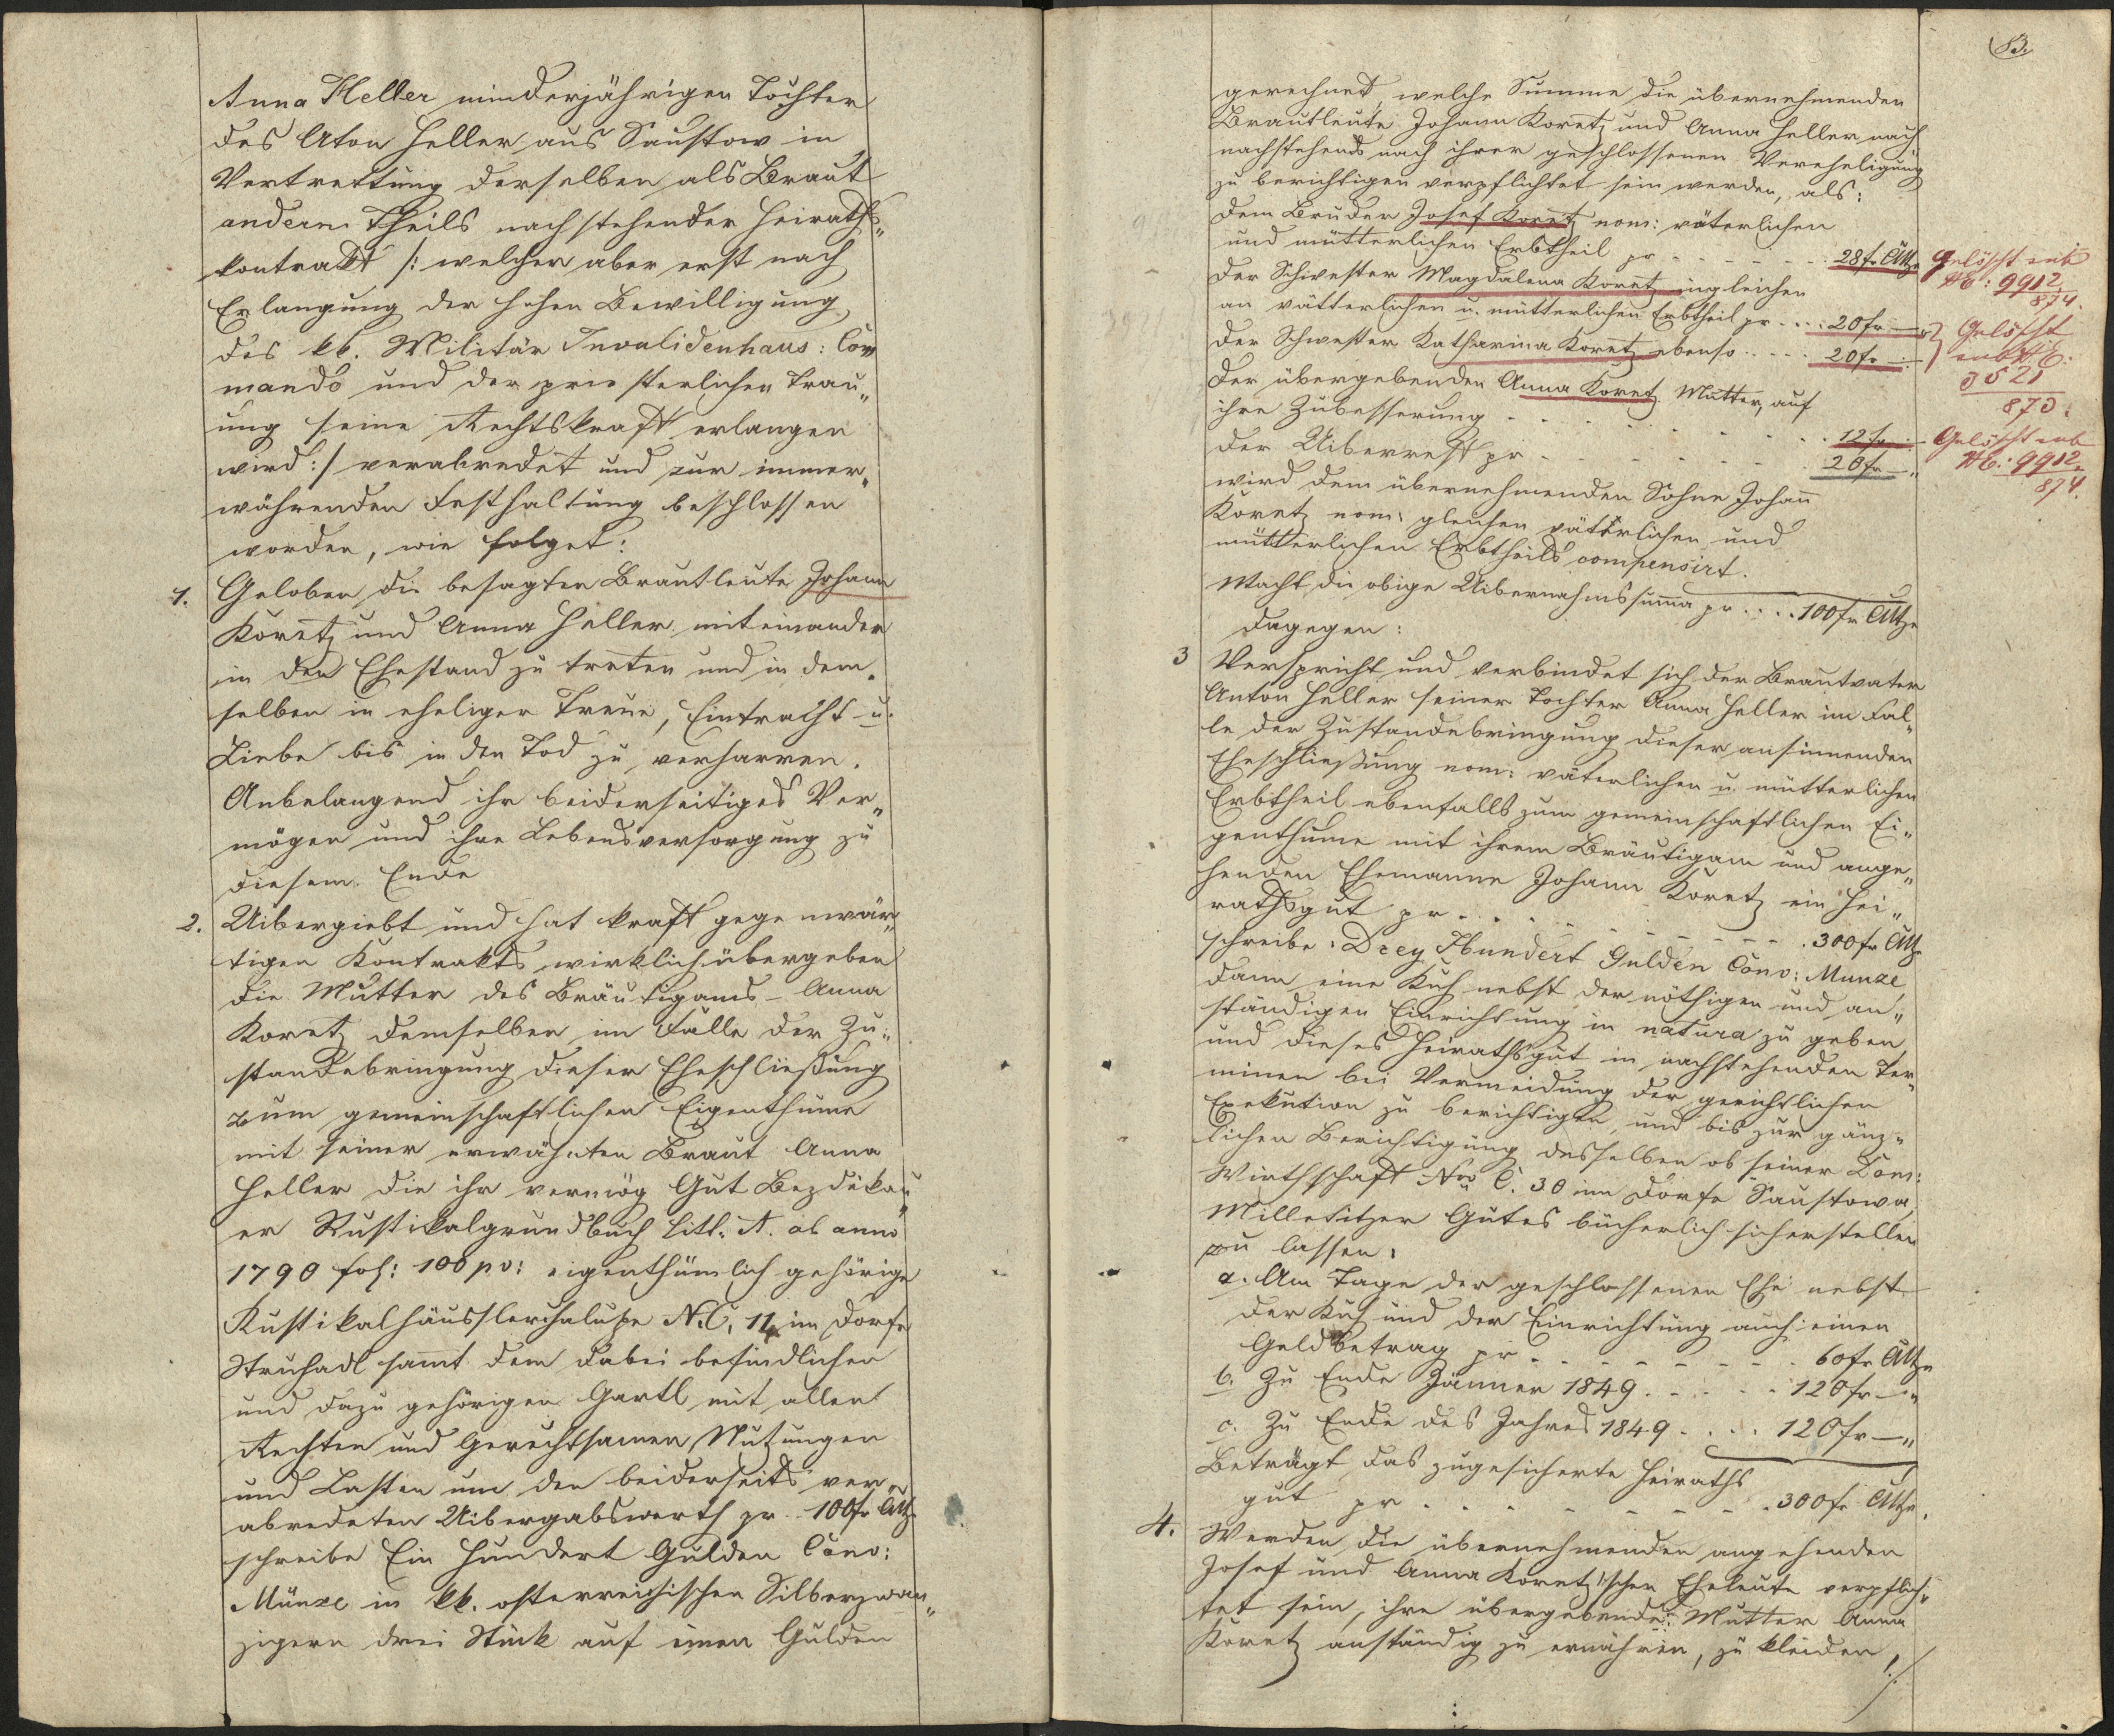 Anna Heller minderjährigen Tochter
des Aton Heller aus Saustow in
Vertrettung derselben als Braut
andern Theils nachstehender Heiraths„
kontrakt /: welcher aber erst nach
Erlangung der hohen Bewilligung
des kk. Militär Invalidenhaus: Com
mando und der priesterlichen Trau„
ung seine Rechtskraft erlangen
wird :/ verabredet und zur immer„
währenden Festhaltung beschlossen
worden, wie folget:
1. Geloben die besagten Brautleute Johann
Koretz und Anna Heller miteinander
in den Ehestand zu treten und in dem„
selben in eheliger Treue, Eintracht u.
Liebe bis in den Tod zu verharren.
Anbelangend ihr beiderseitiges Ver„
mögen und ihre Lebensversorgung zu
diesem Ende
2. Uibergiebt und hat kraft gegenwär„
tigen Kontrakts wirklich übergeben
die Mutter des Bräutigams – Anna
Koretz demselben im Falle der Zu„
standebringung dieser Eheschließung
zum gemeinschaftlichen Eigenthume
mit seiner erwähnten Braut Anna
Heller die ihr vermög Gut Bezdékau„
er Rustikalgrundbuch Litt. A. ab anno
1790 fol: 100 pv: eigenthümlich gehörige
Rustikalhäusslerchaluppe N.C. 14 im Dorfe
Struhadl sammt dem dabei befindlichen
und dazu gehörigen Gartl mit allen
Rechten und Gerechtsamen Nutzungen
und Lasten um den beiderseits ver„
abredeten Uibergabswerth pr. 100 fr CMz
schreibe Ein Hundert Gulden Conv:
Münze in kk. osterreichischen Silberzwan„
zigern drei Stück auf einen Gulden
gerechnet, welche Summe die übernehmenden
Brautleute Johann Koretz und Anna Heller nach
nachstehends nach ihrer geschlossenen Vereheligung
zu berichtigen verpflichtet sein werden, als:
dem Bruder Josef Koretz nom: väterlichen
und mütterlichen Erbtheil pr - - - - - 28 fr CMz
der Schwester Magdalena Koretz ingleichen
an vätterlichen u. mütterlichen Erbtheil pr . . . . 20 fr —„
der Schwester Katharina Koretz ebenso . . . . . 20 fr —
der übergebenden Anna Koretz Mutter, auf
ihre Zubesserung - - - - - - - - 12 fr —
der Uiberrest pr - - - - - - - 20 fr —„
wird dem übernehmenden Sohne Johann
Koretz nom: gleichen väterlichen und
mütterlichen Erbtheils compensirt.
Macht die obige Uibernahmssumma pr . . . . 100 fr CMze
dagegen:
3 Verspricht und verbindet sich der Brautvater
Anton Heller seiner Tochter Anna Heller im Fal„
le der Zustandebringung dieser ansinnenden
Eheschließung nom: väterlichen u. mütterlichen
Erbtheil ebenfalls zum gemeinschaftlichen Ei„
genthume mit ihrem Bräutigam und ange„
henden Ehemanne Johann Koretz ein Hei„
rathsgut pr . . . - - - - - - - . 300 fr CMz
schreibe: Drey Hundert Gulden Conv: Munze
dann eine Kuh nebst der nöthigen und an„
ständigen Einrichtung in natura zu geben
und dieses Heirathsgut in nachstehenden Ter„
minen bei Vermeidung der gerichtlichen
Exekution zu berichtigen, und bis zur gänz„
lichen Berichtigung desselben ob seiner Dom:
Wirthschaft Nro C. 30 im Dorfe Saustowa
Milletitzer Gutes bücherlich sicherstellen
zu lassen:
a. Am Tage der geschlossenen Ehe nebst
der Kuh und der Einrichtung auch einen
Geldbetrag pr - - - - - - - - . 60 fr CMze
b. Zu Ende Jänner 1849 . - - - - 120 fr —„
c. Zu Ende des Jahres 1849 . . . . 120 fr —„
Beträgt das zugesicherte Heiraths
gut pr . . . - - - - - - . 300 fr CMze.
4. Werden die übernehmenden angehenden
Josef und Anna Koretz'schen Eheleute verpflich„
tet sein, ihre übergebende Mutter Anna
Koretz anständig zu ernähren, zu kleiden,
Gelöscht sub
NE: 9912
874.
Gelöscht
sub NE:
3521
873.
Gelöscht sub
NE: 9912
874.